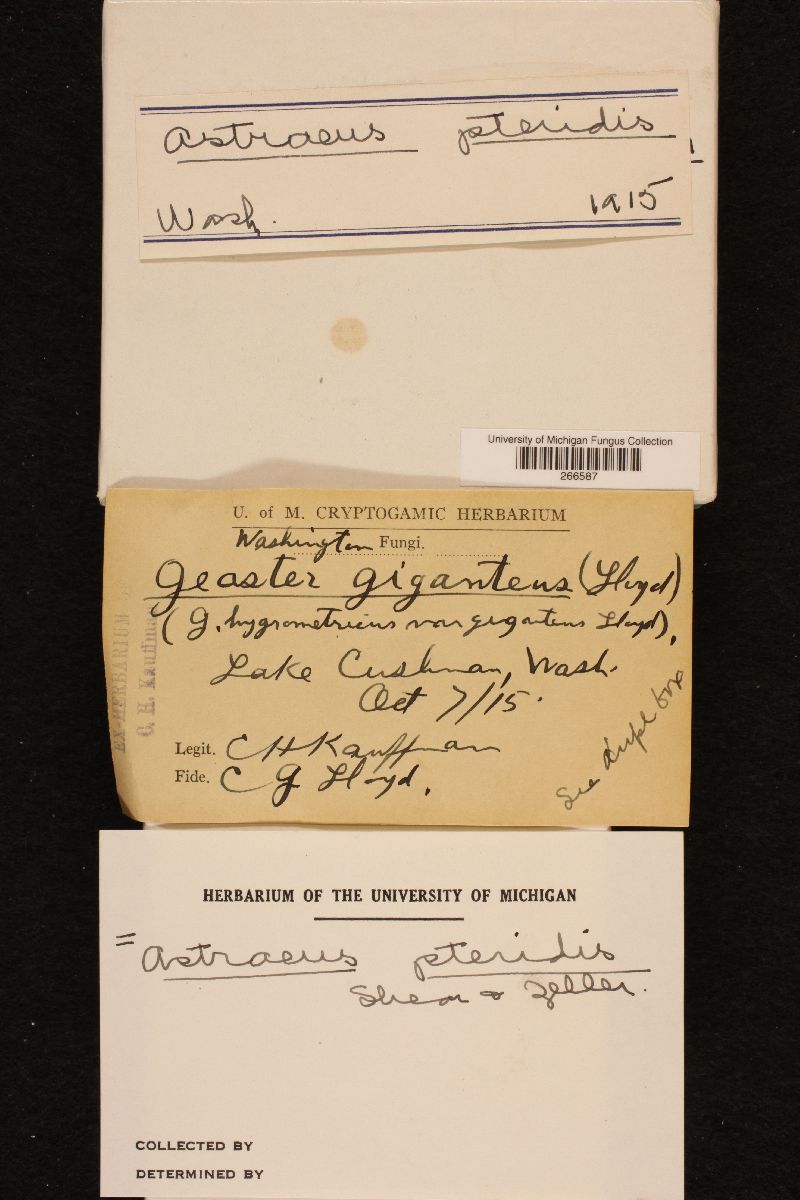 Astraeus pteridis
1
Wash. 1915
University of Michigan Fungus Collection
266587
U. of M. CRYPTOGAMIC HERBARIUM
Washington Fungi.
Geaster giganteus (Lloyd)
(G. hygrometricus var giganteus Lloyd),
Lake Cushman, Wash.
Oct 7/15.
EX-HERBARIUM OF
C. H. Kauffman
Legit. C H Kauffman
Fide. C G Lloyd.
See dupl box
HERBARIUM OF THE UNIVERSITY OF MICHIGAN
= Astraeus pteridis
Shear & Zeller.
COLLECTED BY
DETERMINED BY